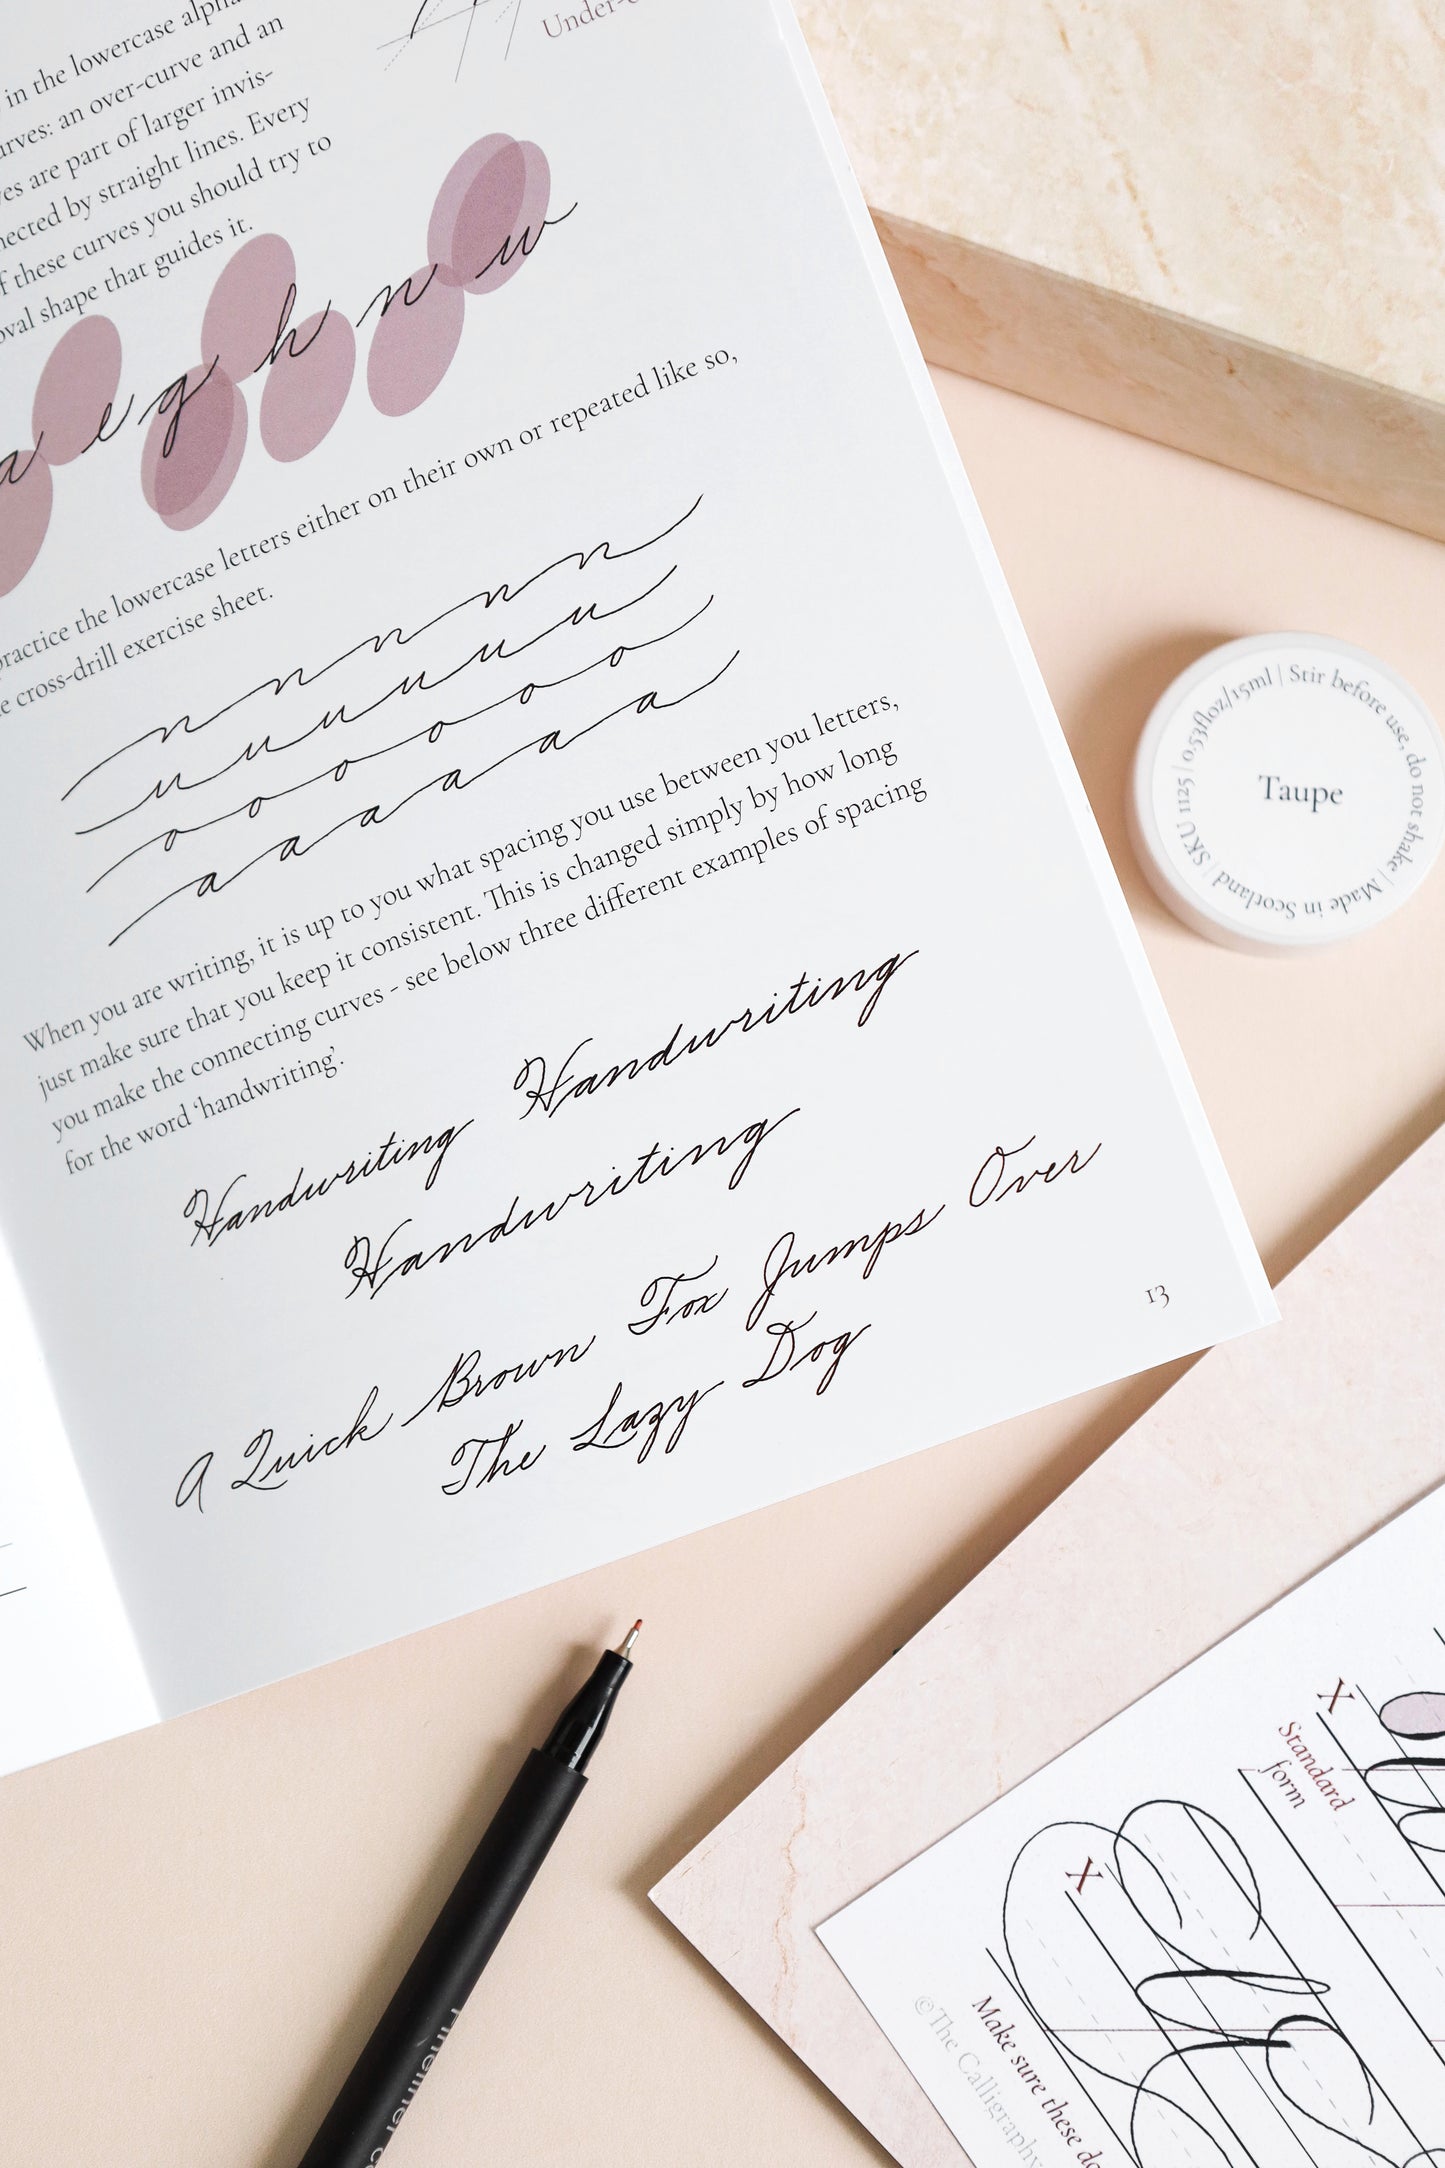 in the lowercase
curves: an over-curve and an
are part of larger invis-
by straight lines. Every
of these curves you should try to
oval shape that guides it.
a e g h n w
practice the lowercase letters either on their own or repeated like so,
cross-drill exercise sheet.
n n n n n
u u u u u u
o o o o o o
a a a a a a
When you are writing, it is up to you what spacing you use between you letters,
just make sure that you keep it consistent. This is changed simply by how long
you make the connecting curves - see below three different examples of spacing
for the word ‘handwriting’.
Handwriting Handwriting
Handwriting
A Quick Brown Fox Jumps Over
The Lazy Dog
13
Taupe
SKU 1125 | 0.53floz/15ml | Stir before use, do not shake | Made in Scotland |
X
Standard
form
X
Make sure these do
©The Calligraphy
Fineliner